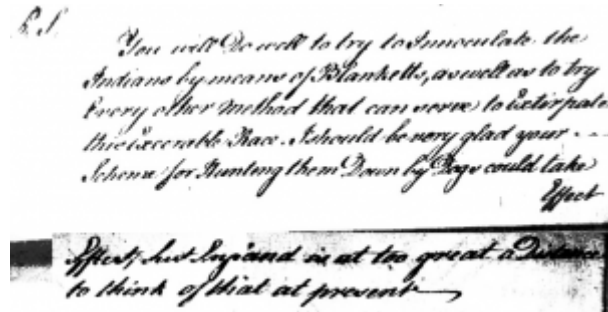 P. S.
You will Do well to try to Innoculate the
Indians by means of Blanketts, as well as to try
Every other Method that can serve to Extirpate
this Execrable Race. I should be very glad your
Scheme for Hunting them Down by Dogs could take
Effect
Effect, but England is at too great a Distance
to think of that at present